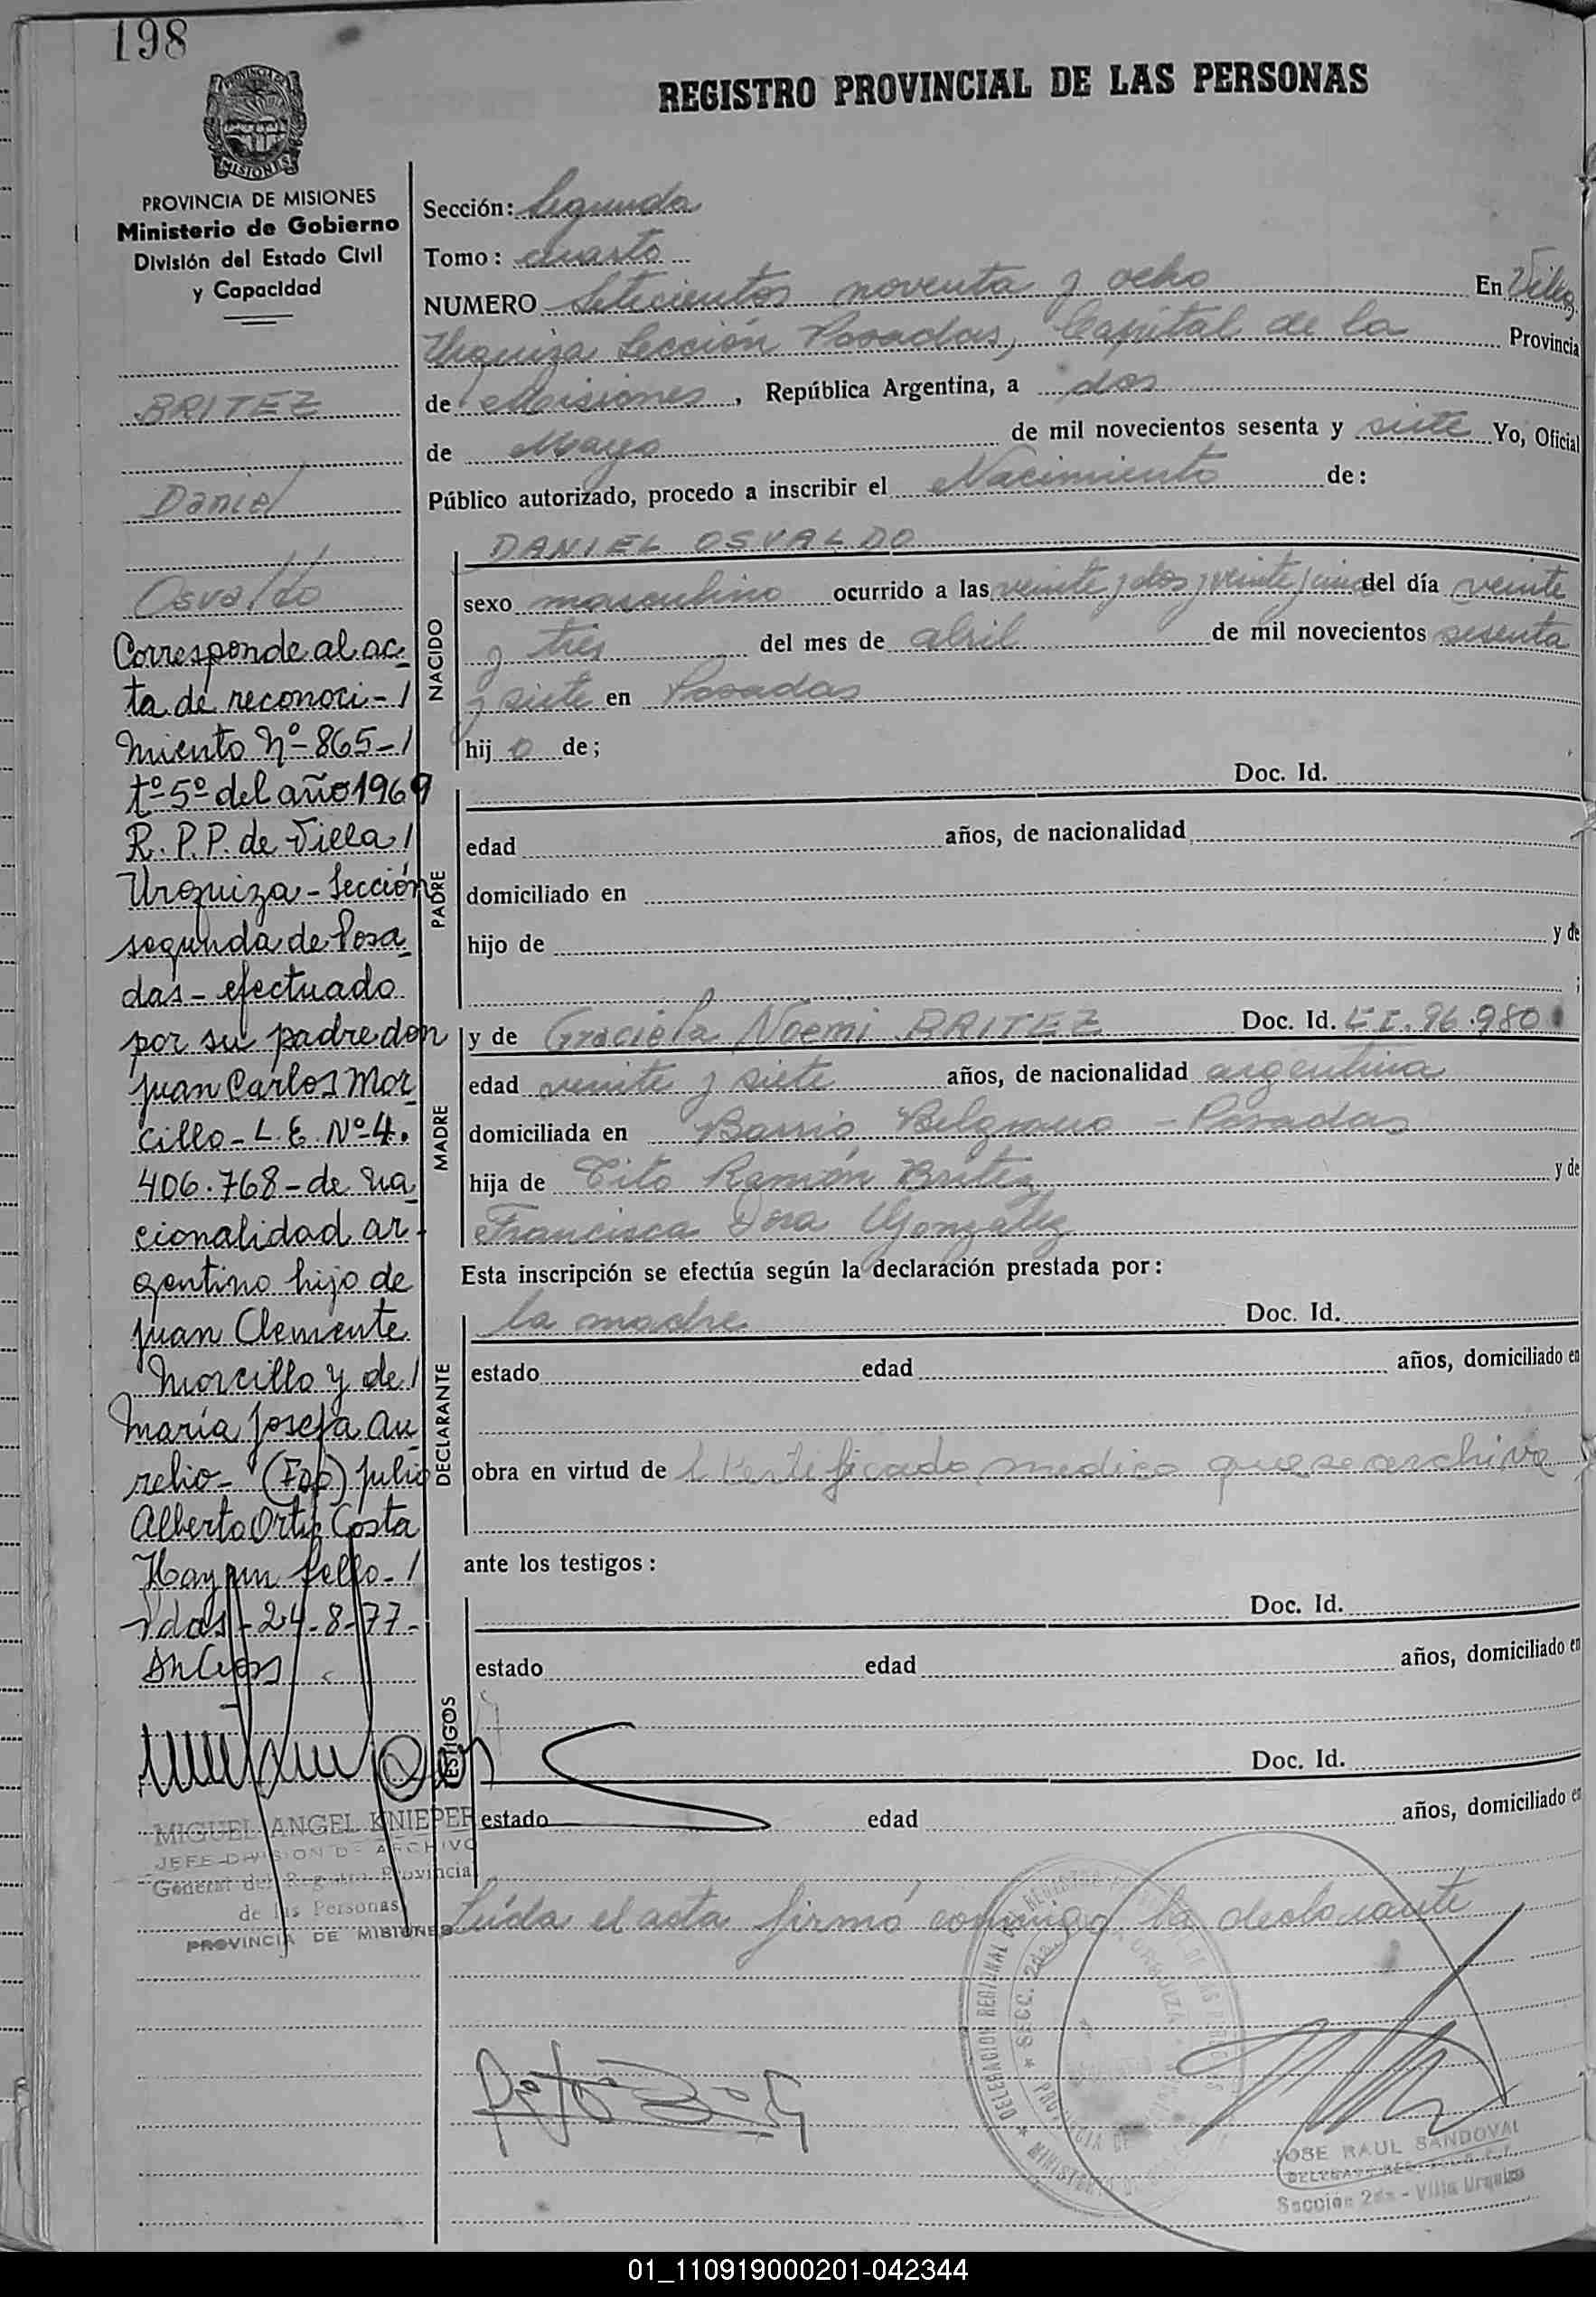 198
REGISTRO PROVINCIAL DE LAS PERSONAS
MISIONES
PROVINCIA DE MISIONES
Ministerio de Gobierno
División del Estado Civil
y Capacidad
BRITEZ
Daniel
Osvaldo
Corresponde al ac-
ta de reconoci-/
miento Nº-865-/
tº-5º del año 1969
R.P.P. de Villa/
Urquiza-Sección
segunda de Posa
das-efectuado
por su padre don
Juan Carlos Mor
cillo-L.E. Nº-4.
406.768-de na
cionalidad ar-
gentino hijo de
Juan Clemente
Morcillo y de/
María Josefa Au
relio- (Fdo) Julio
Alberto Ortiz Costa
Hay un sello-/
Pdas-24-8-77-
MIGUEL ANGEL KNIEPER
JEFE DIVISION DE ARCHIVO
General del Registro Provincial
de las Personas
PROVINCIA DE MISIONES
Sección: Segunda
Tomo: cuarto
NUMERO Setecientos noventa y ocho En Villa
Urquiza Sección Posadas, Capital de la Provincia
de Misiones, República Argentina, a dos
de Mayo de mil novecientos sesenta y siete Yo, Oficial
Público autorizado, procedo a inscribir el Nacimiento de:
NACIDO
DANIEL OSVALDO
sexo masculino ocurrido a las veinte y dos y veinte y cinco del día veinte
y tres del mes de abril de mil novecientos sesenta
y siete en Posadas
hijo de;
PADRE
Doc. Id.
edad años, de nacionalidad
domiciliado en
hijo de y de
;
MADRE
y de Graciela Noemi BRITEZ Doc. Id. L I. 96.980
edad veinte y siete años, de nacionalidad argentina
domiciliada en Barrio Belgrano - Posadas
hija de Tito Ramón Britez y de
Francisca Dora González
Esta inscripción se efectúa según la declaración prestada por:
DECLARANTE
la madre Doc. Id.
estado edad años, domiciliado en
obra en virtud de Certificado medico que se archiva
ante los testigos:
TESTIGOS
Doc. Id.
estado edad años, domiciliado en
Doc. Id.
estado edad años, domiciliado en
Leída el acta firmó conmigo la declarante
DELEGACION REGIONAL DEL REGISTRO PROVINCIAL DE LAS PERSONAS
SECC. 2da. VILLA URQUIZA
JOSE RAUL SANDOVAL
Sección 2da - Villa Urquiza
01_110919000201-042344